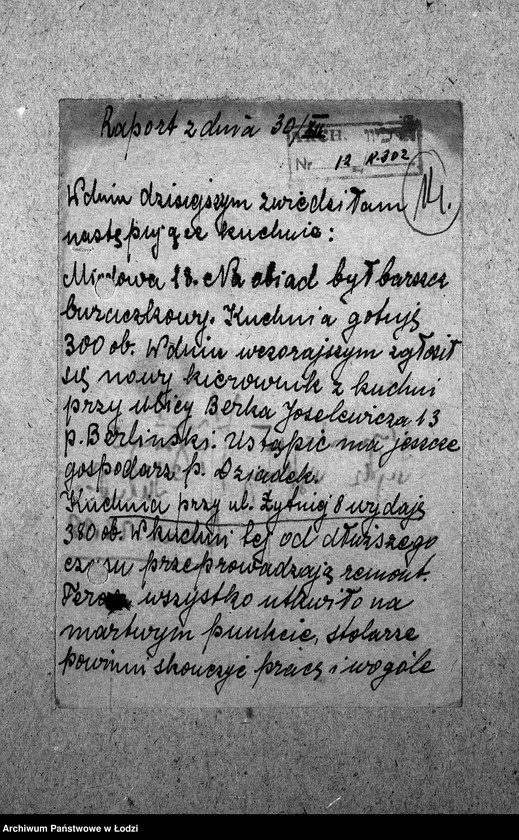 Raport z dnia 30/XII
ARCH. ארכיון
Nr 12 R. 302
W dniu dzisiejszym zwiedziłam
następujące kuchnie:
Miodowa 18. Na obiad był barszcz
buraczkowy. Kuchnia gotuje
300 ob. W dniu wczorajszym zgłosił
się nowy kierownik z kuchni
przy ulicy Berka Joselewicza 13
p. Berliński. Ustąpić ma jeszcze
gospodarz p. Dziadek.
Kuchnia przy ul. Żytniej 8 wydaje
380 ob. W kuchni tej od dłuższego
czasu przeprowadzają remont.
Teraz wszystko utkwiło na
martwym punkcie, stolarze
powinni skończyć pracę i wogóle
Archiwum Państwowe w Łodzi